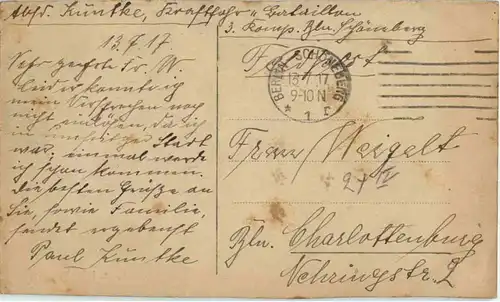 Absd. Kuntke, Kraftfahr- Bataillon
3. Komp. Bln. Schöneberg
13.7.17
Sehr geehrte Fr. W.
Leider konnte ich
mein Versprechen noch
nicht einlösen, da ich
in Stadt
war; einmal werde
ich schon kommen.
Die besten Grüße an
Sie, sowie Familie,
sendet ergebenst
Paul Kuntke
Feldpost
BERLIN-SCHÖNEBERG
13.7.17
9-10 N
* 1 r
Frau Weigelt
Bln. Charlottenburg
Nehringstr. 2